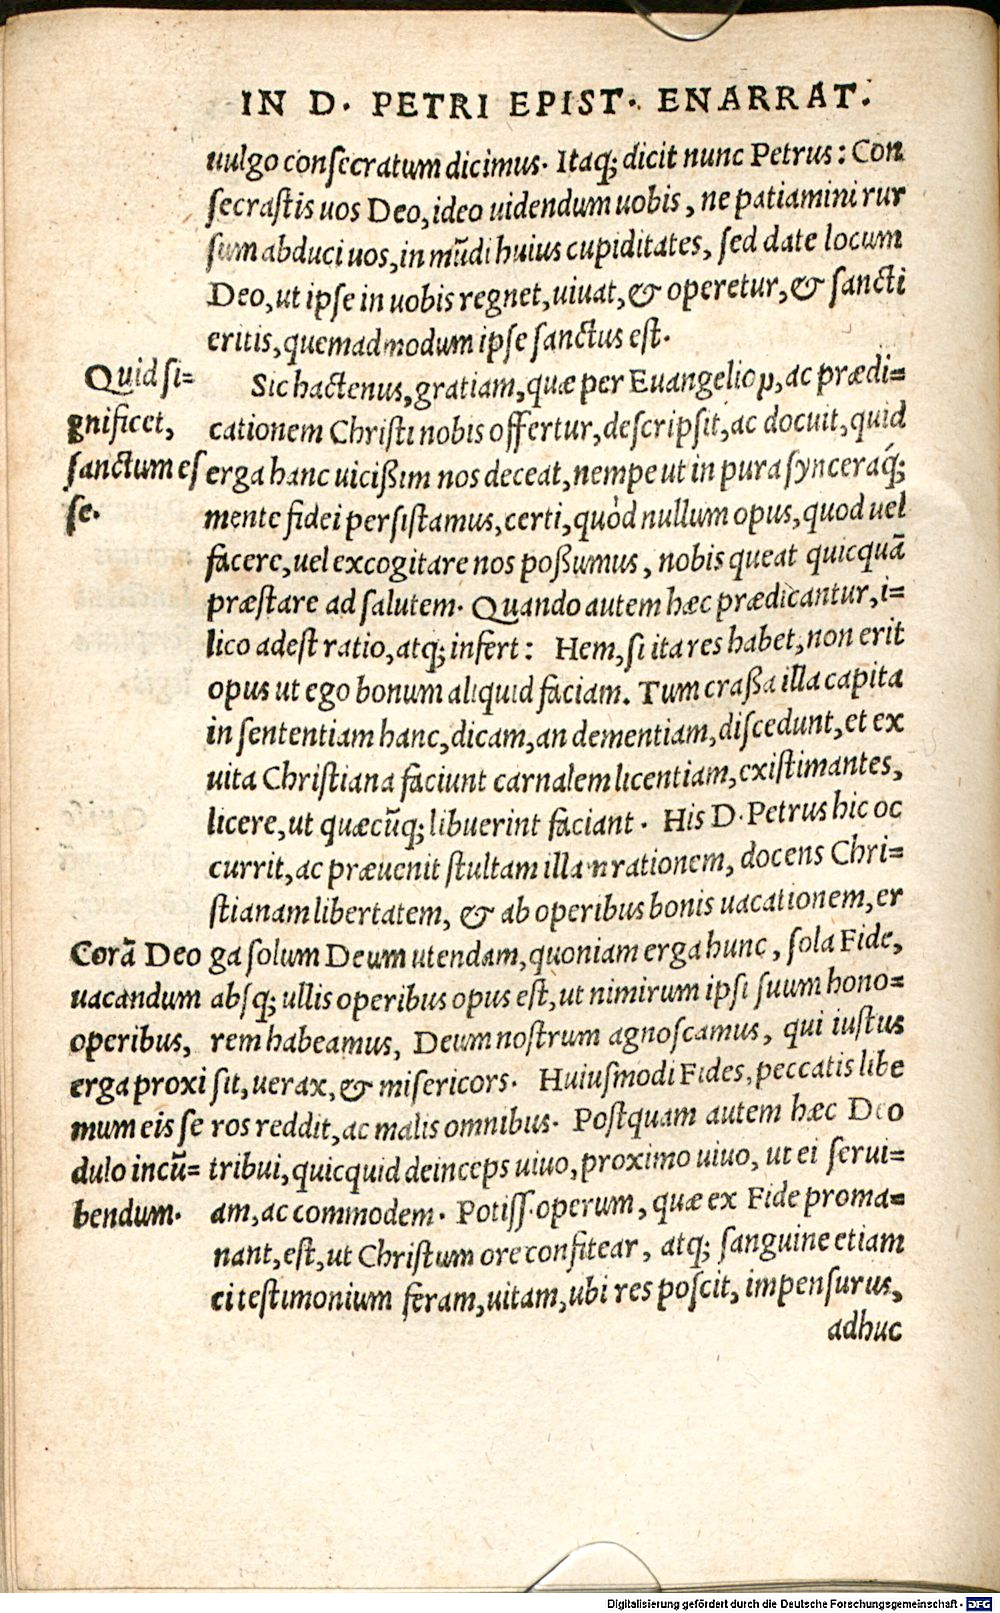 IN D. PETRI EPIST. ENARRAT.
uulgo consecratum dicimus. Itaq; dicit nunc Petrus: Con
secrastis uos Deo, ideo uidendum uobis, ne patiamini rur
sum abduci uos, in mūdi huius cupiditates, sed date locum
Deo, ut ipse in uobis regnet, uiuat, & operetur, & sancti
eritis, quemadmodum ipse sanctus est.
Quid si=
gnificet,
sanctum es
se.
Sic hactenus, gratiam, quæ per Euangelion, ac prædi=
cationem Christi nobis offertur, descripsit, ac docuit, quid
erga hanc uicißim nos deceat, nempe ut in pura synceraq́;
mente fidei persistamus, certi, quòd nullum opus, quod uel
facere, uel excogitare nos poßumus, nobis queat quicquā
præstare ad salutem. Quando autem hæc prædicantur, i=
lico adest ratio, atq; infert: Hem, si ita res habet, non erit
opus ut ego bonum aliquid faciam. Tum craßa illa capita
in sententiam hanc, dicam, an dementiam, discedunt, et ex
uita Christiana faciunt carnalem licentiam, existimantes,
licere, ut quæcūq; libuerint faciant. His D. Petrus hic oc
currit, ac præuenit stultam illam rationem, docens Chri=
stianam libertatem, & ab operibus bonis uacationem, er
ga solum Deum utendam, quoniam erga hunc, sola Fide,
absq; ullis operibus opus est, ut nimirum ipsi suum hono=
rem habeamus, Deum nostrum agnoscamus, qui iustus
sit, uerax, & misericors. Huiusmodi Fides, peccatis libe
ros reddit, ac malis omnibus. Postquam autem hæc Deo
tribui, quicquid deinceps uiuo, proximo uiuo, ut ei serui=
am, ac commodem. Potiss. operum, quæ ex Fide proma=
nant, est, ut Christum ore confitear, atq; sanguine etiam
ei testimonium feram, uitam, ubi res poscit, impensurus,
Corā Deo
uacandum
operibus,
erga proxi
mum eis se
dulo incū=
bendum.
adhuc
Digitalisierung gefördert durch die Deutsche Forschungsgemeinschaft - DFG